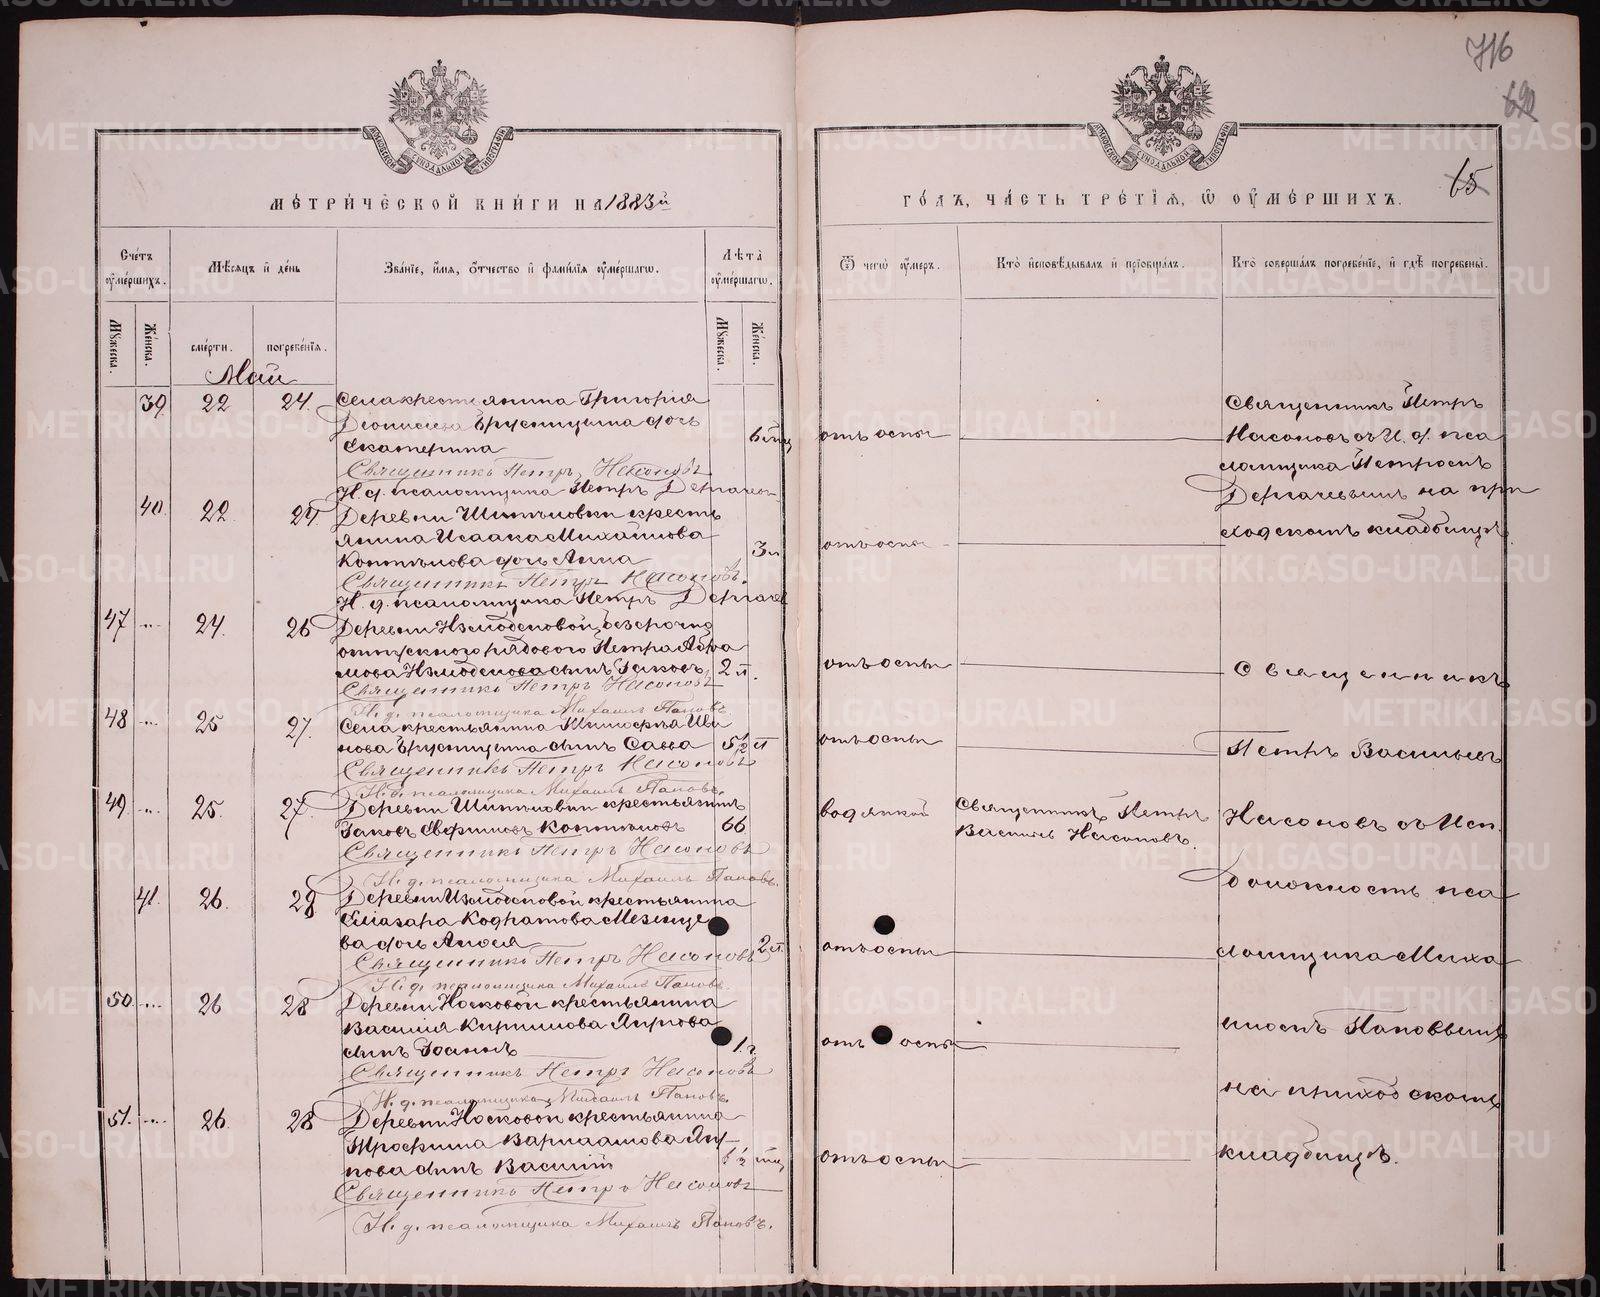 716
690
65
МЕТРИЧЕСКОЙ КНИГИ НА 1883й
ГОДЪ, ЧАСТЬ ТРЕТІЯ, Ѿ ОУМЕРШИХЪ.
Счетъ оумершихъ.
Мѣсяцъ и день
Званіе, имя, отчество и фамилія оумершагω.
Лѣта оумершагω.
Мужеска.
Женска.
смерти.
погребенія.
Мужеска.
Женска.
Ѿ чегω оумеръ.
Кто исповѣдывалъ и пріобщалъ.
Кто совершалъ погребеніе, и гдѣ погребены.
Май
39 22 24. Села крестьянина Григорія
Діонисіева Брусницына дочь
Екатерина 6 мц отъ оспы
Священникъ Петръ Насоновъ
И. д. псаломщика Петръ Дергачев
40. 22. 24 Деревни Шипѣловки кресть
янина Исаака Михайлова
Коптѣлова дочь Анна 3 л отъ оспы
Священникъ Петръ Насоновъ.
И. д. псаломщика Петръ Дергачев
Священникъ Петръ
Насоновъ съ И. д. пса
ломщика Петромъ
Дергачевымъ на при
ходскомъ кладбищѣ
47 24. 26 Деревни Измоденовой, безсрочно
отпускного рядового Петра Абра
мова Измоденова сынъ Іаковъ 2 л. отъ оспы
Священникъ Петръ Насоновъ
И. д. псаломщика Михаилъ Пановъ.
48 25 27. Села крестьянина
нова Брусницына сынъ Савва 5 1/2 л отъ оспы
Священникъ Петръ Насоновъ
И. д. псаломщика Михаилъ Пановъ.
49. 25. 27. Деревни Шипѣловки крестьянинъ
Іаковъ Коптѣловъ 66 водянкой Священникъ Петръ
Васильевъ Насоновъ.
Священникъ Петръ Насоновъ
И. д. псаломщика Михаилъ Пановъ.
41. 26. 28 Деревни Измоденовой крестьянина
Еліазара Кодратова Мезенце
ва дочь 2 л. отъ оспы
Священникъ Петръ Насоновъ
И. д. псаломщика Михаилъ Пановъ.
50. 26 28 Деревни Носковой крестьянина
Василія Кирилова Япрова
сынъ Іоаннъ 1 г. отъ оспы
Священникъ Петръ Насоновъ
И. д. псаломщика Михаилъ Пановъ.
51. 26. 28 Деревни Носковой крестьянина
Трофима Варлаамова
сынъ Василій 1/2 мц отъ оспы
Священникъ Петръ Насоновъ
И. д. псаломщика Михаилъ Пановъ.
Священникъ
Петръ Васильевъ
Насоновъ съ Исп.
должность пса
ломщика Миха
иломъ Пановымъ
на приходскомъ
кладбищѣ.
METRIKI.GASO-URAL.RU